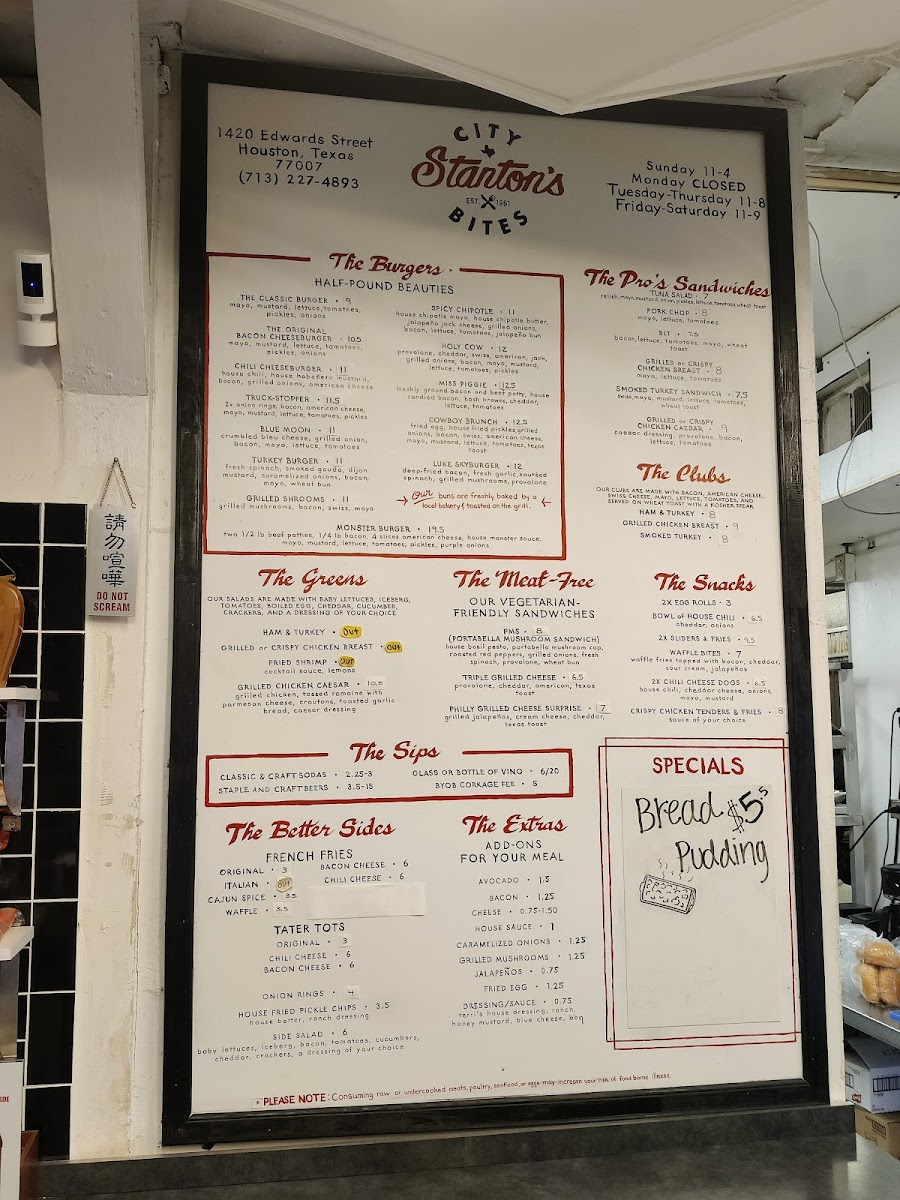 1420 Edwards Street
Houston, Texas
77007
(713) 227-4893
CITY
Stanton's
EST. 1961
BITES
Sunday 11-4
Monday CLOSED
Tuesday-Thursday 11-8
Friday-Saturday 11-9
The Burgers
HALF-POUND BEAUTIES
THE CLASSIC BURGER • 9
mayo, mustard, lettuce, tomatoes,
pickles, onions
THE ORIGINAL
BACON CHEESEBURGER • 10.5
mayo, mustard, lettuce, tomatoes,
pickles, onions
CHILI CHEESEBURGER • 11
house chili, house habanero mustard,
bacon, grilled onions, american cheese
TRUCK-STOPPER • 11.5
2x onion rings, bacon, american cheese,
mayo, mustard, lettuce, tomatoes, pickles
BLUE MOON • 11
crumbled bleu cheese, grilled onion,
bacon, mayo, lettuce, tomatoes
TURKEY BURGER • 11
fresh spinach, smoked gouda, dijon
mustard, caramelized onions, bacon,
mayo, wheat bun
GRILLED SHROOMS • 11
grilled mushrooms, bacon, swiss, mayo
SPICY CHIPOTLE • 11
house chipotle mayo, house chipotle butter,
jalapeño jack cheese, grilled onions,
bacon, lettuce, tomatoes, jalapeño bun
HOLY COW • 12
provolone, cheddar, swiss, american, jack,
grilled onions, bacon, mayo, mustard,
lettuce, tomatoes, pickles
MISS PIGGIE • 12.5
freshly ground bacon and beef patty, house
candied bacon, hash browns, cheddar,
lettuce, tomatoes
COWBOY BRUNCH • 12.5
fried egg, house fried pickles, grilled
onions, bacon, swiss, american cheese,
mayo, mustard, lettuce, tomatoes, texas
toast
LUKE SKYBURGER • 12
deep-fried bacon, fresh garlic, sautéed
spinach, grilled mushrooms, provolone
Our buns are freshly baked by a
local bakery & toasted on the grill.
MONSTER BURGER • 19.5
two 1/2 lb beef patties, 1/4 lb bacon, 4 slices american cheese, house monster sauce,
mayo, mustard, lettuce, tomatoes, pickles, purple onions
The Pro's Sandwiches
TUNA SALAD • 7
relish, mayo, mustard, onion, pickles, lettuce, tomatoes, wheat toast
PORK CHOP • 8
mayo, lettuce, tomatoes
BLT • 7.5
bacon, lettuce, tomatoes, mayo, wheat
toast
GRILLED or CRISPY
CHICKEN BREAST • 8
mayo, lettuce, tomatoes
SMOKED TURKEY SANDWICH • 7.5
swiss, mayo, mustard, lettuce, tomatoes,
wheat toast
GRILLED or CRISPY
CHICKEN CAESAR • 9
caesar dressing, provolone, bacon,
lettuce, tomatoes
The Clubs
OUR CLUBS ARE MADE WITH BACON, AMERICAN CHEESE,
SWISS CHEESE, MAYO, LETTUCE, TOMATOES, AND
SERVED ON WHEAT TOAST WITH A KOSHER SPEAR
HAM & TURKEY • 8
GRILLED CHICKEN BREAST • 9
SMOKED TURKEY • 8
The Greens
OUR SALADS ARE MADE WITH BABY LETTUCES, ICEBERG,
TOMATOES, BOILED EGG, CHEDDAR, CUCUMBER,
CRACKERS, AND A DRESSING OF YOUR CHOICE
HAM & TURKEY • OUT
GRILLED or CRISPY CHICKEN BREAST • OUT
FRIED SHRIMP • OUT
cocktail sauce, lemons
GRILLED CHICKEN CAESAR • 10.5
grilled chicken, tossed romaine with
parmesan cheese, croutons, toasted garlic
bread, caesar dressing
The Meat-Free
OUR VEGETARIAN-
FRIENDLY SANDWICHES
PMS • 8
(PORTABELLA MUSHROOM SANDWICH)
house basil pesto, portabella mushroom cap,
roasted red peppers, grilled onions, fresh
spinach, provolone, wheat bun
TRIPLE GRILLED CHEESE • 6.5
provolone, cheddar, american, texas
toast
PHILLY GRILLED CHEESE SURPRISE • 7
grilled jalapeños, cream cheese, cheddar,
texas toast
The Snacks
2X EGG ROLLS • 3
BOWL of HOUSE CHILI • 6.5
cheddar, onions
2X SLIDERS & FRIES • 9.5
WAFFLE BITES • 7
waffle fries topped with bacon, cheddar,
sour cream, jalapeños
2X CHILI CHEESE DOGS • 6.5
house chili, cheddar cheese, onions,
mayo, mustard
CRISPY CHICKEN TENDERS & FRIES • 8
sauce of your choice
The Sips
CLASSIC & CRAFT SODAS • 2.25-3
STAPLE AND CRAFT BEERS • 3.5-15
GLASS OR BOTTLE OF VINO • 6/20
BYOB CORKAGE FEE • 5
The Better Sides
FRENCH FRIES
ORIGINAL • 3
ITALIAN • OUT
CAJUN SPICE • 3.5
WAFFLE • 3.5
BACON CHEESE • 6
CHILI CHEESE • 6
TATER TOTS
ORIGINAL • 3
CHILI CHEESE • 6
BACON CHEESE • 6
ONION RINGS • 4
HOUSE FRIED PICKLE CHIPS • 3.5
house batter, ranch dressing
SIDE SALAD • 6
baby lettuces, iceberg, bacon, tomatoes, cucumbers,
cheddar, crackers, a dressing of your choice
The Extras
ADD-ONS
FOR YOUR MEAL
AVOCADO • 1.5
BACON • 1.25
CHEESE • 0.75-1.50
HOUSE SAUCE • 1
CARAMELIZED ONIONS • 1.25
GRILLED MUSHROOMS • 1.25
JALAPEÑOS • 0.75
FRIED EGG • 1.25
DRESSING/SAUCE • 0.75
terri's house dressing, ranch,
honey mustard, blue cheese, bbq
SPECIALS
Bread $5
Pudding
• PLEASE NOTE: Consuming raw or undercooked meats, poultry, seafood, or eggs may increase your risk of food borne illness.
請勿喧嘩
DO NOT
SCREAM